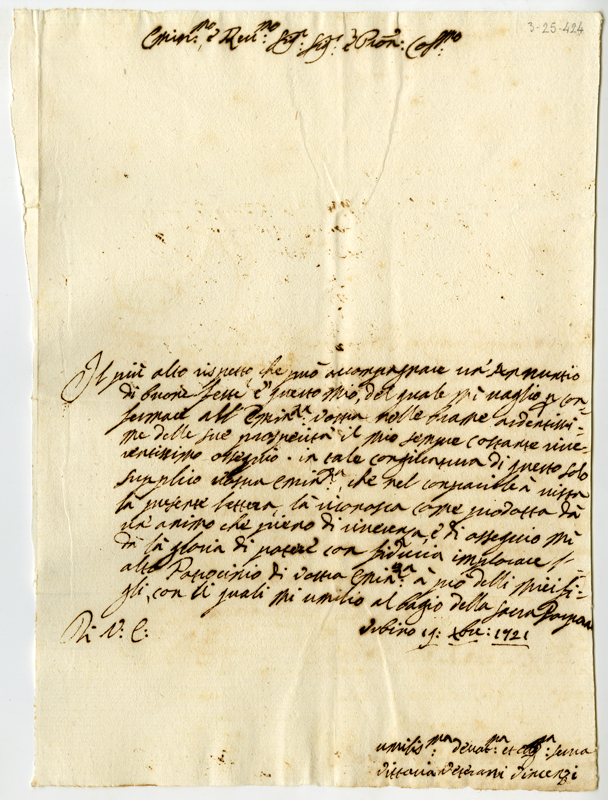 3-25-424
Emin:mo, e Rev:mo Sig:r Sig:r e Pron: Col:mo
Il più alto rispetto, che può accompagnare un' Annuntio
di buone feste è questo mio, del quale mi vaglio p con-
fermare all' Emin:za vostra nelle brame ardentissi-
me delle sue prosperità il mio sempre costante rive-
rentissimo ossequio. in tale congiuntura di questo solo
supplico vostra Emin:za, che nel compacirli à vista
la presente lettera, la riconosca come prodotta dà
un' animo che pieno di riverenza, è di ossequio mi
dà la gloria di potere con fiducia implorare l'
alto Patrocinio di vostra Emin:za à prò delli miei fi-
gli, con li quali mi umilio al bagio della Sacra Porpora
Di V: E:
Urbino 19: Xbre: 1721
umilis:ma devot:ma et obl:ma serva
Vittoria Veterani Vincenzi